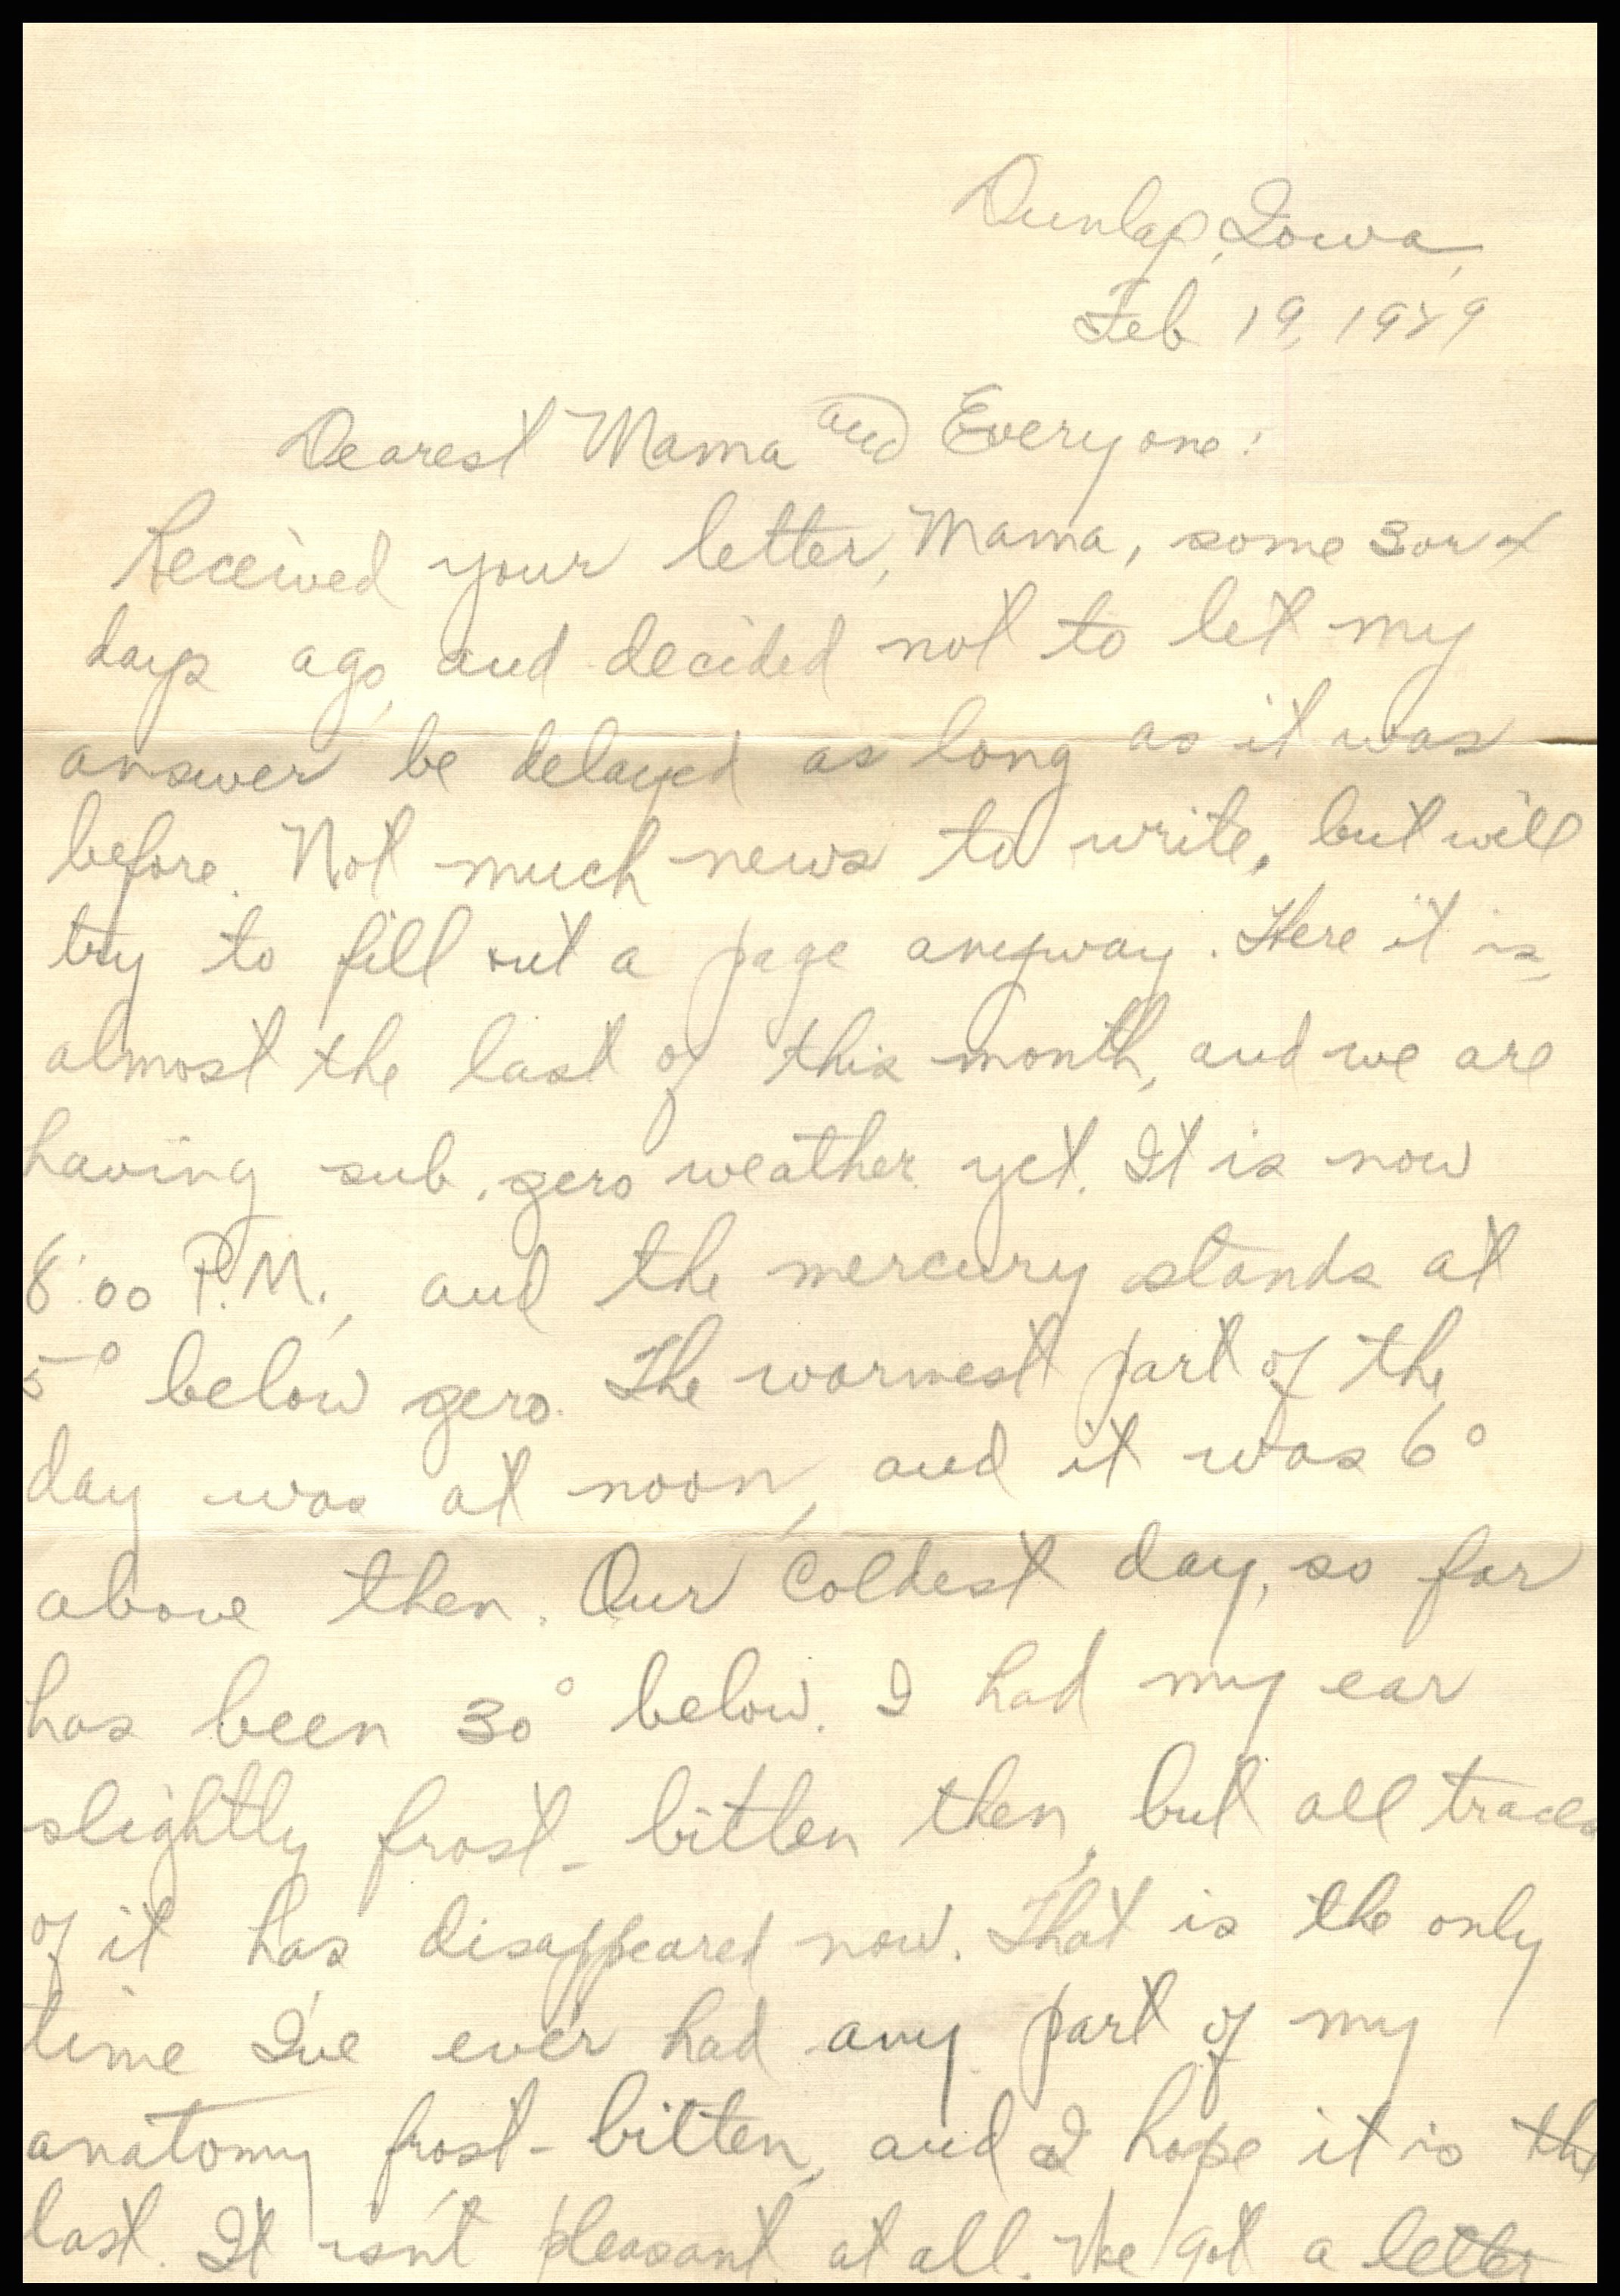 Dunlap, Iowa,
Feb 19, 1929
Dearest Mama and Everyone:
Received your letter, Mama, some 3 or 4
days ago, and decided not to let my
answer be delayed as long as it was
before. Not much news to write, but will
try to fill out a page anyway. Here it is
almost the last of this month, and we are
having sub-zero weather yet. It is now
8:00 P.M., and the mercury stands at
5° below zero. The warmest part of the
day was at noon, and it was 6°
above then. Our coldest day, so far
has been 30° below. I had my ear
slightly frost-bitten then, but all traces
of it has disappeared now. That is the only
time I've ever had any part of my
anatomy frost-bitten, and I hope it is the
last. It isn't pleasant at all. We got a letter